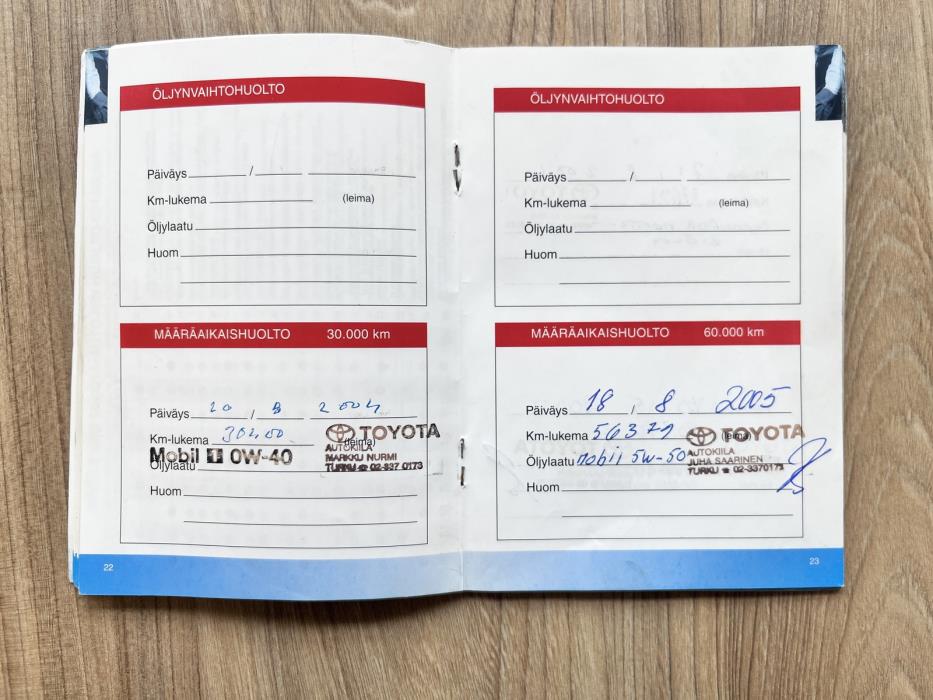 ÖLJYNVAIHTOHUOLTO
Päiväys / 
Km-lukema (leima)
Öljylaatu
Huom
MÄÄRÄAIKAISHUOLTO 30.000 km
Päiväys 20 / 8 2004
Km-lukema 30400 (leima)
TOYOTA
Mobil 1 0W-40
Öljylaatu
AUTOKIILA
MARKKU NURMI
TURKU ☎ 02-337 0173
Huom
22
ÖLJYNVAIHTOHUOLTO
Päiväys /
Km-lukema (leima)
Öljylaatu
Huom
MÄÄRÄAIKAISHUOLTO 60.000 km
Päiväys 18 / 8 2005
Km-lukema 56371 (leima)
TOYOTA
Öljylaatu mobil 5w-50
AUTOKIILA
JUHA SAARINEN
TURKU ☎ 02-3370173
Huom
23